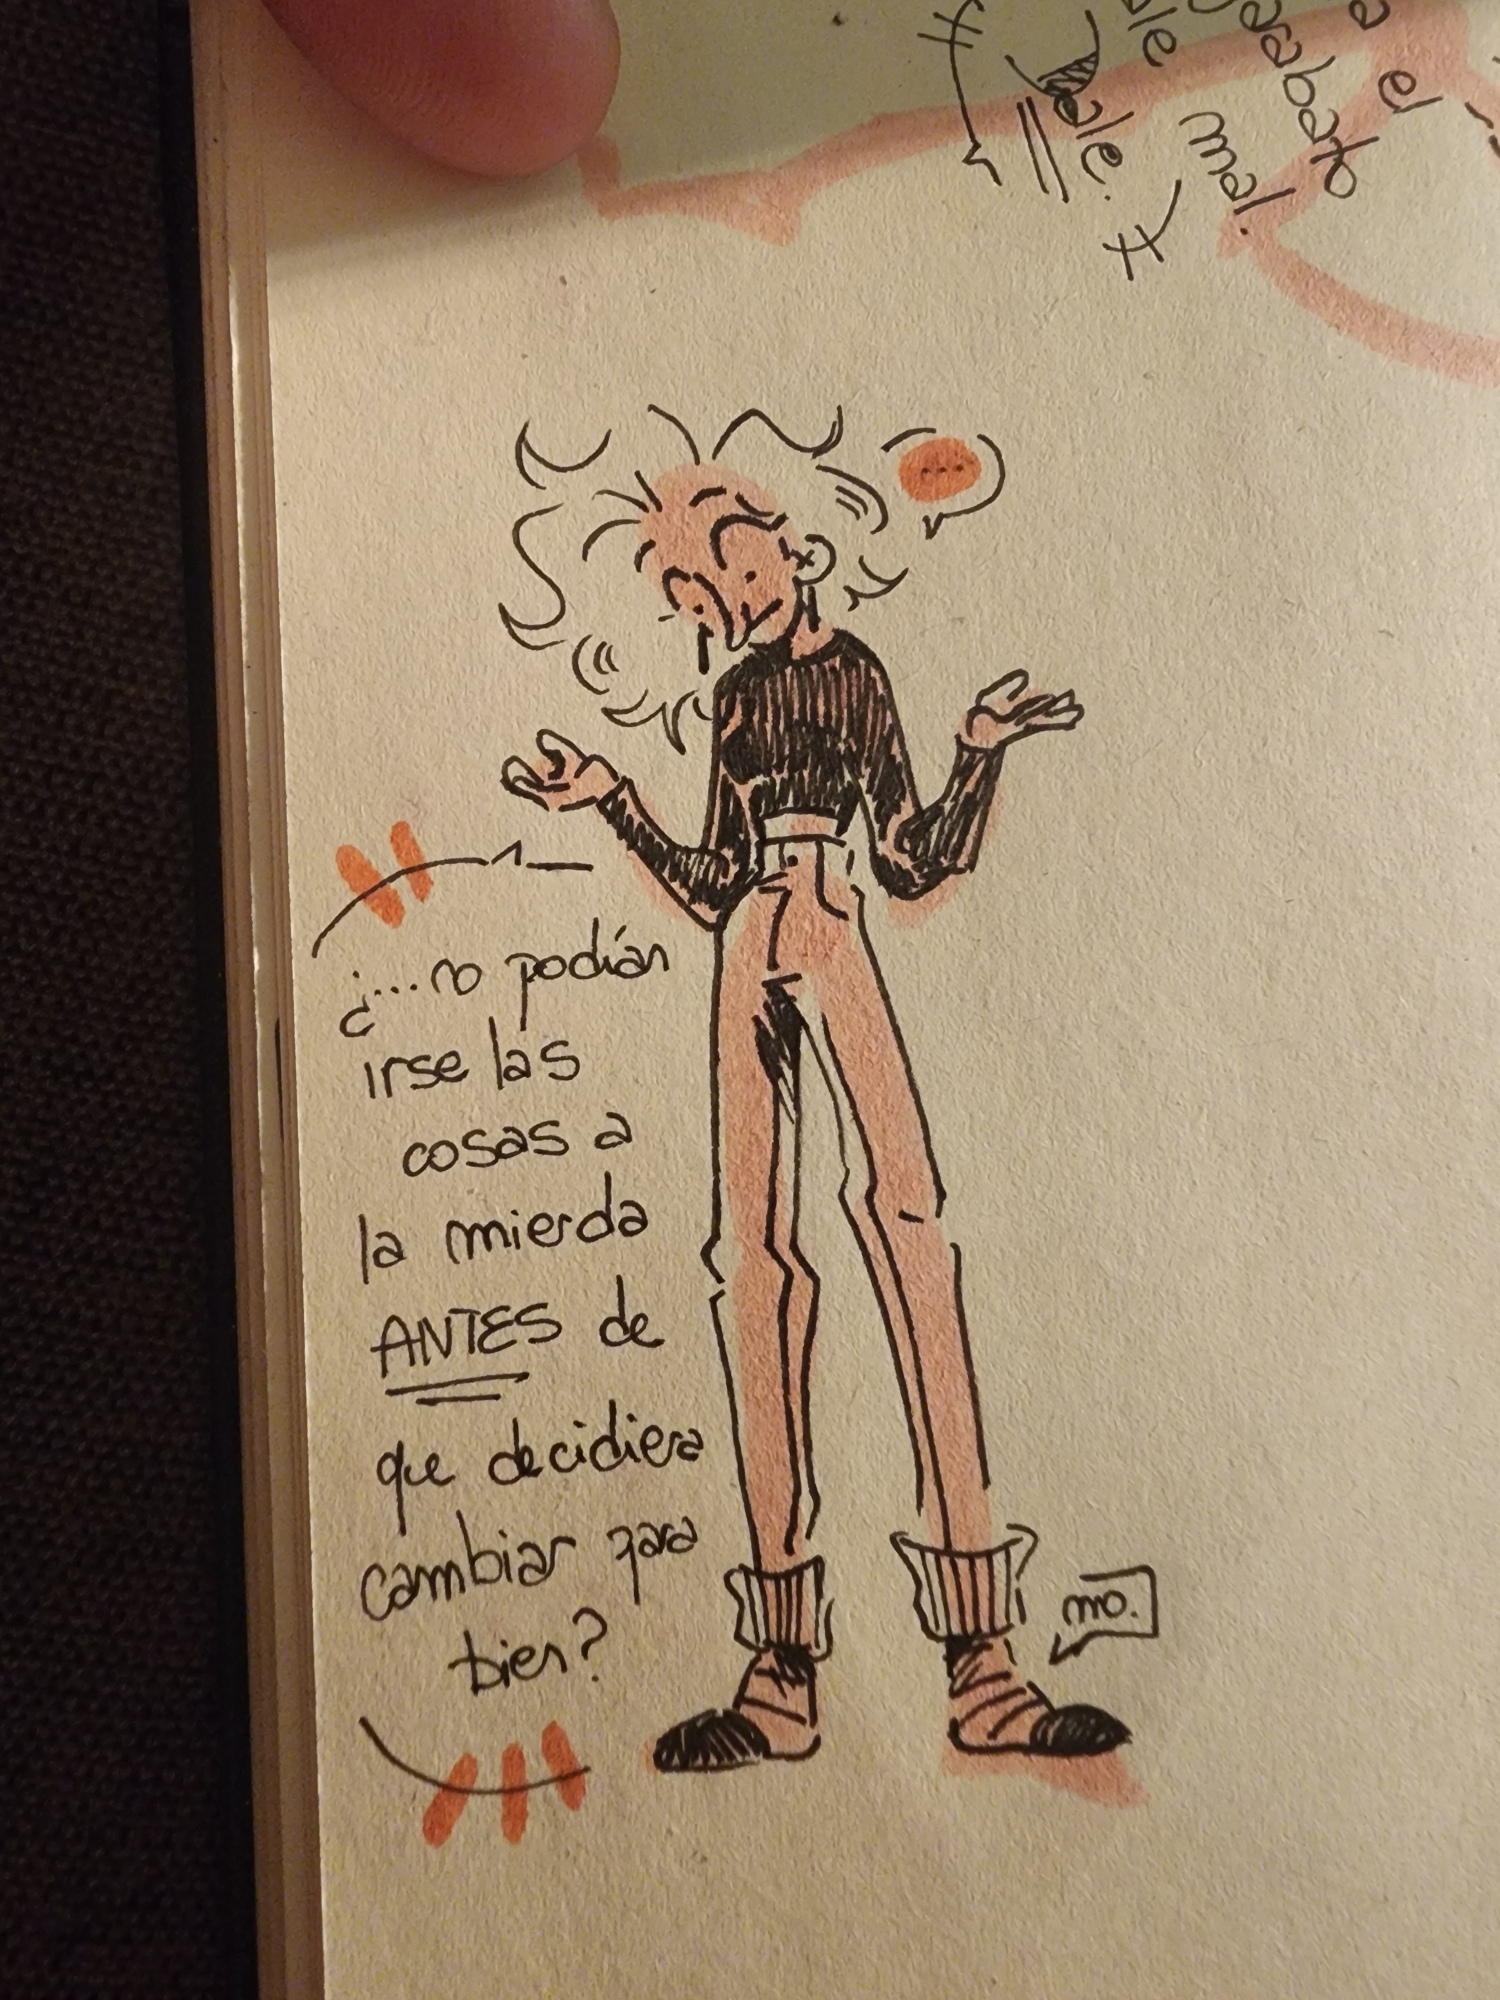 a el
garabato
ale mal.
Dale.
...
¿...no podían
irse las
cosas a
la mierda
ANTES de
que decidiera
cambiar para
bien?
mo.